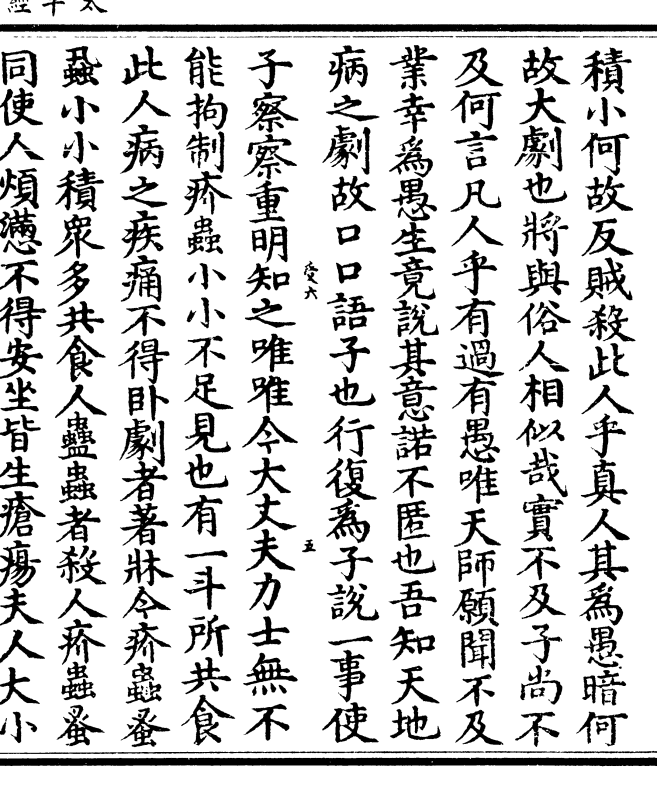 太平經
積小何故反賊殺此人乎真人其爲愚暗何
故大劇也將與俗人相似哉實不及子尚不
及何言凡人乎有過有愚唯天師願聞不及
業幸爲愚生竟說其意諾不匿也吾知天地
病之劇故口口語子也行復爲子說一事使
受六
五
子察察重明知之唯唯今大丈夫力士無不
能拘制疥蟲小小不足見也有一斗所共食
此人病之疾痛不得卧劇者著牀今疥蟲蚤
蝨小小積衆多共食人蠱蟲者殺人疥蟲蚤
同使人煩懣不得安坐皆生瘡瘍夫人大小